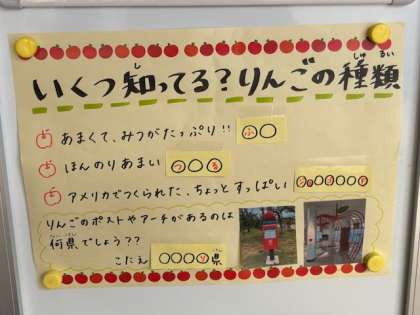 いくつ知ってる?りんごの種類
あまくて、みつがたっぷり!! ふ○
ほんのりあまい つ○○る
アメリカでつくられた、ちょっとすっぱい
りんごのポストやアーチがあるのは
何県でしょう??
こたえ ○○○り県